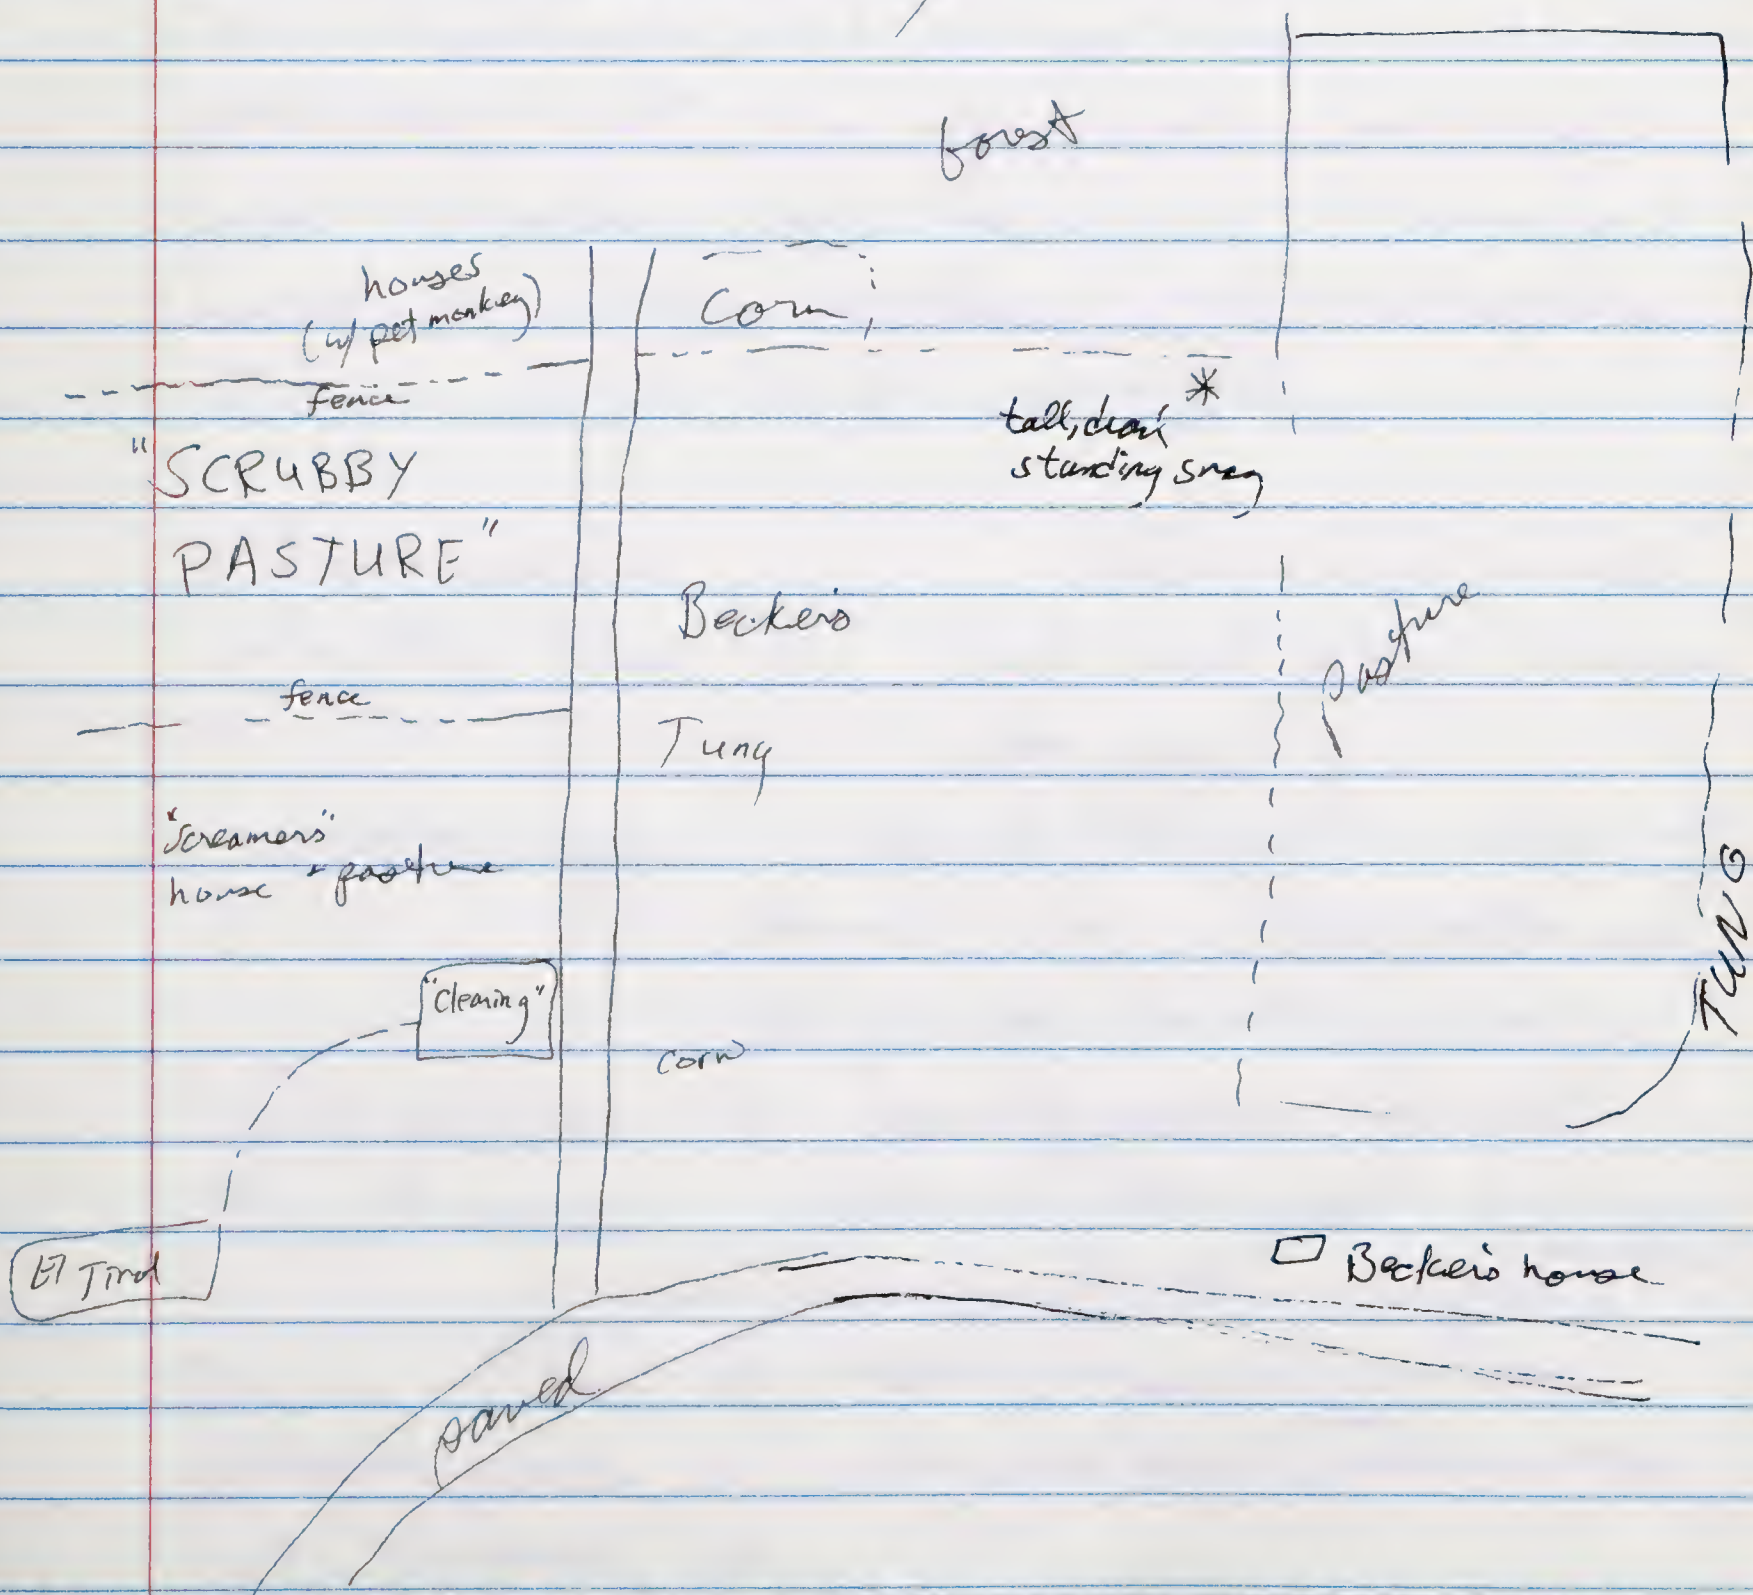 forest
houses
(w/ pet monkey)
Corn
fence
tall, dead
standing snag
"SCRUBBY
PASTURE"
Becker's
pasture
fence
Tung
"screamers"
house + pasture
TUNG
"Clearing"
corn
El Tirol
Becker's house
paved